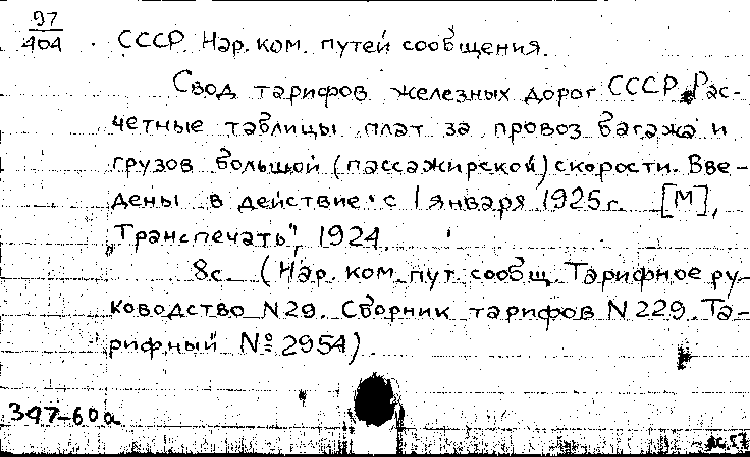 97
404
СССР. Нар. ком. путей сообщения.
Свод тарифов железных дорог СССР. Рас-
четные таблицы плат за провоз багажа и
грузов большой (пассажирской) скорости. Вве-
дены в действие с 1 января 1925 г. [М],
"Транспечать", 1924.
8с. (Нар. ком. пут. сообщ. Тарифное ру-
ководство N 29. Сборник тарифов N 229. Та-
рифный № 2954).
347-60а